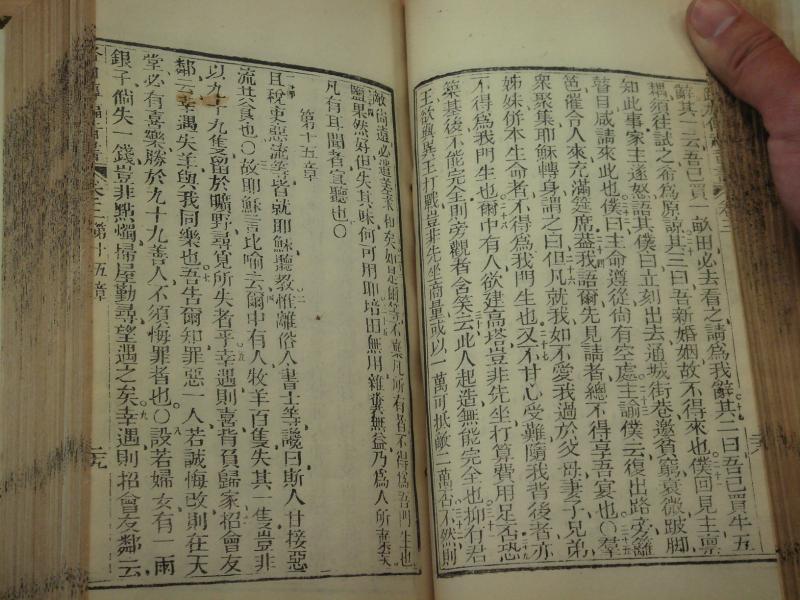 辭其一云吾已買一畝田必去看之請為我辭其二曰吾已買牛五
耦須往試之希為原諒其三曰吾新婚姻故不得來也僕回見主稟
知此事家主遂怒語其僕曰立刻出去通城街巷邀貧窮衰微跛脚
瞽目咸請來此也僕曰主命遵從尚有空處主諭僕云復出路旁籬
笆催令人來充滿筵席葢我語爾先見請者總不得享吾宴也〇羣
衆聚集耶穌轉身謂之曰但凡就我如不愛我過於父母妻子兄弟
姊妹併本生命者不得為我門生也又不甘心受難隨我背後者亦
不得為我門生也爾中有人欲建高塔豈非先坐打算費用足否恐
築基後不能完全則旁觀者含笑云此人起造無能完全也抑有君
王欲與異王打戰豈非先坐商量或以一萬可抵敵二萬否不然則
敵尚遠必遣差求和矣如是爾等不棄凡所有者不得為吾門生也
鹽果然好但失其味何可用耶培田無用雜糞無益乃為人所棄矣
凡有耳聞者宜聽也〇
第十五章
且稅吏惡流等皆就耶穌聽教惟離俗人書士等議曰斯人甘接惡
流共食也〇故耶穌言比喻云爾中有人牧羊百隻失其一隻豈非
以九十九隻留於曠野尋覓所失者乎幸遇則喜背負歸家招會友
鄰云幸遇失羊與我同樂也吾告爾知罪惡一人若誠悔改則在天
堂必有喜樂勝於九十九善人不須悔罪者也〇設若婦女有一兩
銀子倘失一錢豈非點燭掃屋勤尋望遇之矣幸遇則招會友鄰云
卷之三第十五章